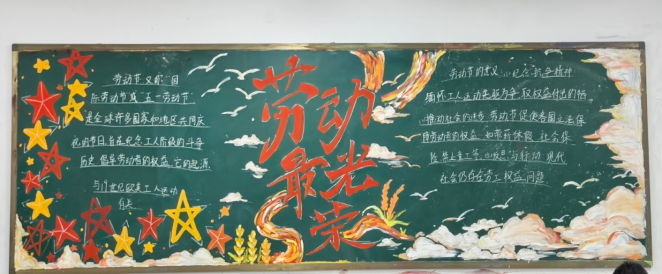 劳动节又称"国
际劳动节"或"五一劳动节"
是全球许多国家和地区共同庆
祝的节日,旨在纪念工人阶级的斗争
历史,倡导劳动者的权益,它的起源
与19世纪欧美工人运动
有关
劳动
最光
荣
劳动节的意义:(1)纪念 抗争精神
缅怀工人运动先驱为争取权益付出的牺
(2)推动社会的进步 劳动节促使各国立法保
障劳动者的权益,如带薪休假,社会保
社会仍存在劳工权益问题